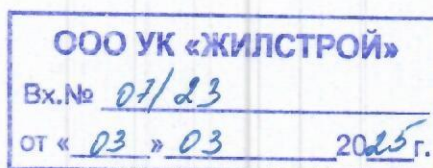 ООО УК «ЖИЛСТРОЙ»
Вх.№ 07/23
от « 03 » 03 2025г.